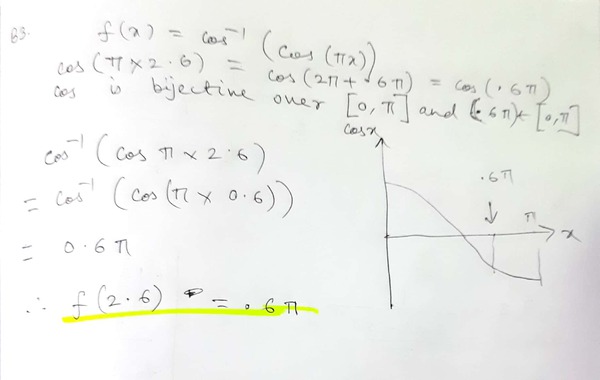 B3. f(x) = cos⁻¹ (cos (πx))
cos (π × 2·6) = cos (2π + ·6π) = cos (·6π)
cos is bijective over [0, π] and (·6π) ∈ [0, π]
cos x
cos⁻¹ (cos π × 2·6)
= cos⁻¹ (cos (π × 0·6))
= 0·6π
∴ f(2·6) = ·6π
·6π
π
x